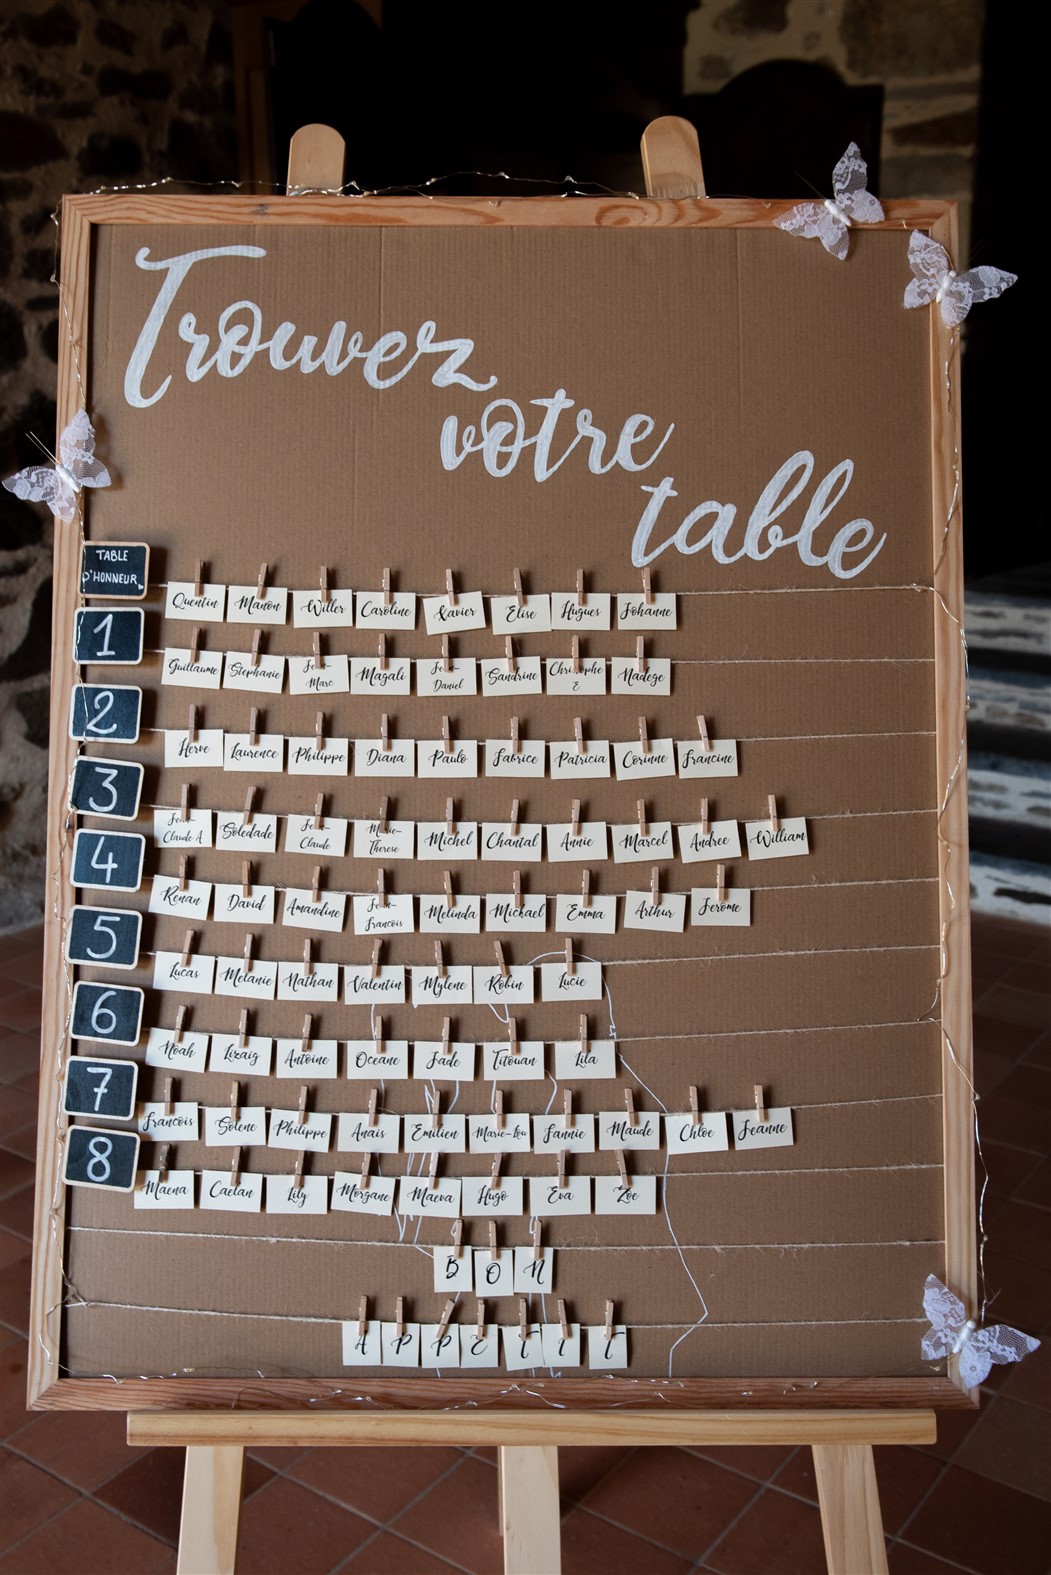 Trouvez
votre
table
TABLE
D'HONNEUR
Quentin Manon Willer Caroline Xavier Elise Hugues Johanne
1
Guillaume Stephanie Jean-Marc Magali Jean-Daniel Sandrine Christophe E Nadege
2
Herve Laurence Philippe Diana Paulo Fabrice Patricia Corinne Francine
3
Jean-Claude A Soledade Jean-Claude Marie-Therese Michel Chantal Annie Marcel Andree William
4
Renan David Amandine Jean-Francois Melinda Mickael Emma Arthur Jerome
5
Lucas Melanie Nathan Valentin Mylene Robin Lucie
6
Noah Lizaig Antoine Oceane Jade Titouan Lila
7
Francois Solene Philippe Anais Emilien Marie-Lou Fannie Maude Chloe Jeanne
8
Maena Caelan Lily Morgane Maeva Hugo Eva Zoe
BON
APPETIT